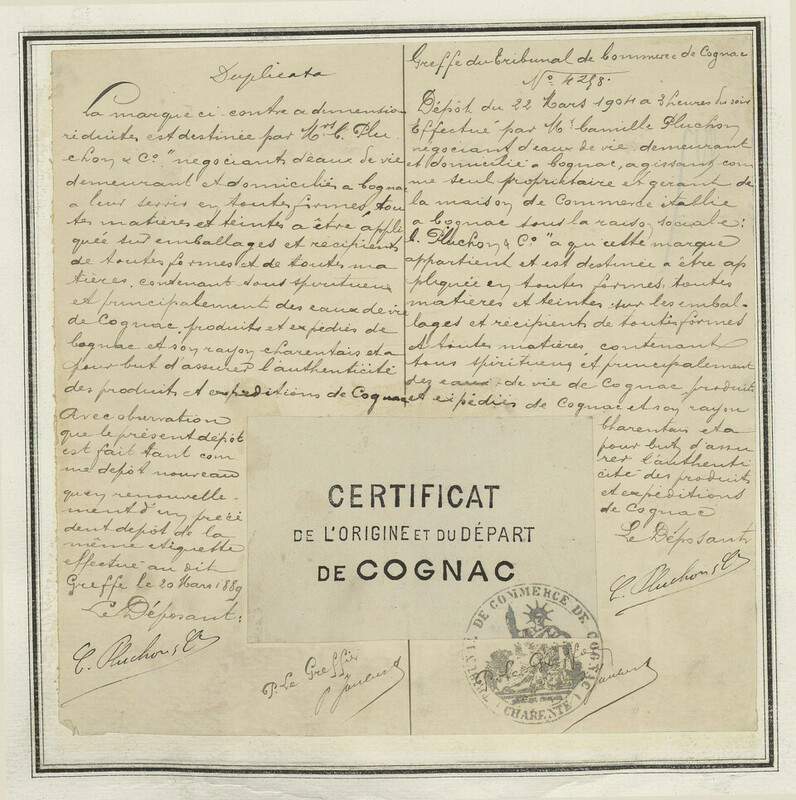 Duplicata
La marque ci contre a dimention
réduites est destinée par Mrs C. Plu-
chon & Co "négociants d'eaux de vie
demeurant et domiciliés a Cognac
a leur servir en toutes formes, tou
tes matières et teintes a être appli
quée sur emballages et récipients
de toutes formes et de toutes ma
tières, contenant tous spiritueux
et principalement des eaux de vie
de Cognac, produits et expédiés de
Cognac et son rayon charentais et a
pour but d'assurer l'authenticité
des produits et expeditions de Cognac
Avec observation
que le présent dépôt
est fait tant com
me depôt nouveau
qu'en renouvelle-
ment d'un précé
dent depôt de la
même etiquette
effectué au dit
Greffe le 20 Mars 1889
Le Déposant:
C. Pluchon & Co
P. Le Greffier
Greffe du Tribunal de Commerce de Cognac
No 4258.
Dépôt du 22 Mars 1904 a 3 heures du soir
Effectué par Mr Camille Pluchon
négociant d'eaux de vie, demeurant
et domicilié a Cognac, agissant com
me seul propriétaire et gérant de
la maison de Commerce établie
a Cognac sous la raison sociale:
C. Pluchon & Co " a qui cette marque
appartient et est destinée a être ap
pliquée en toutes formes, toutes
matières et teintes, sur les embal-
lages et récipient de toutes formes
et toutes matières contenant
tous spiritueux et principalement
des eaux-de vie de Cognac produits
et expédiés de Cognac et son rayon
charentais et a
pour but d'assu
rer l'authenti
cité des produits
et expéditions
de Cognac
Le Déposant
C. Pluchon & Co
CERTIFICAT
DE L'ORIGINE ET DU DÉPART
DE COGNAC
P. Le Greffier
TRIBUNAL DE COMMERCE DE COGNAC
(CHARENTE)